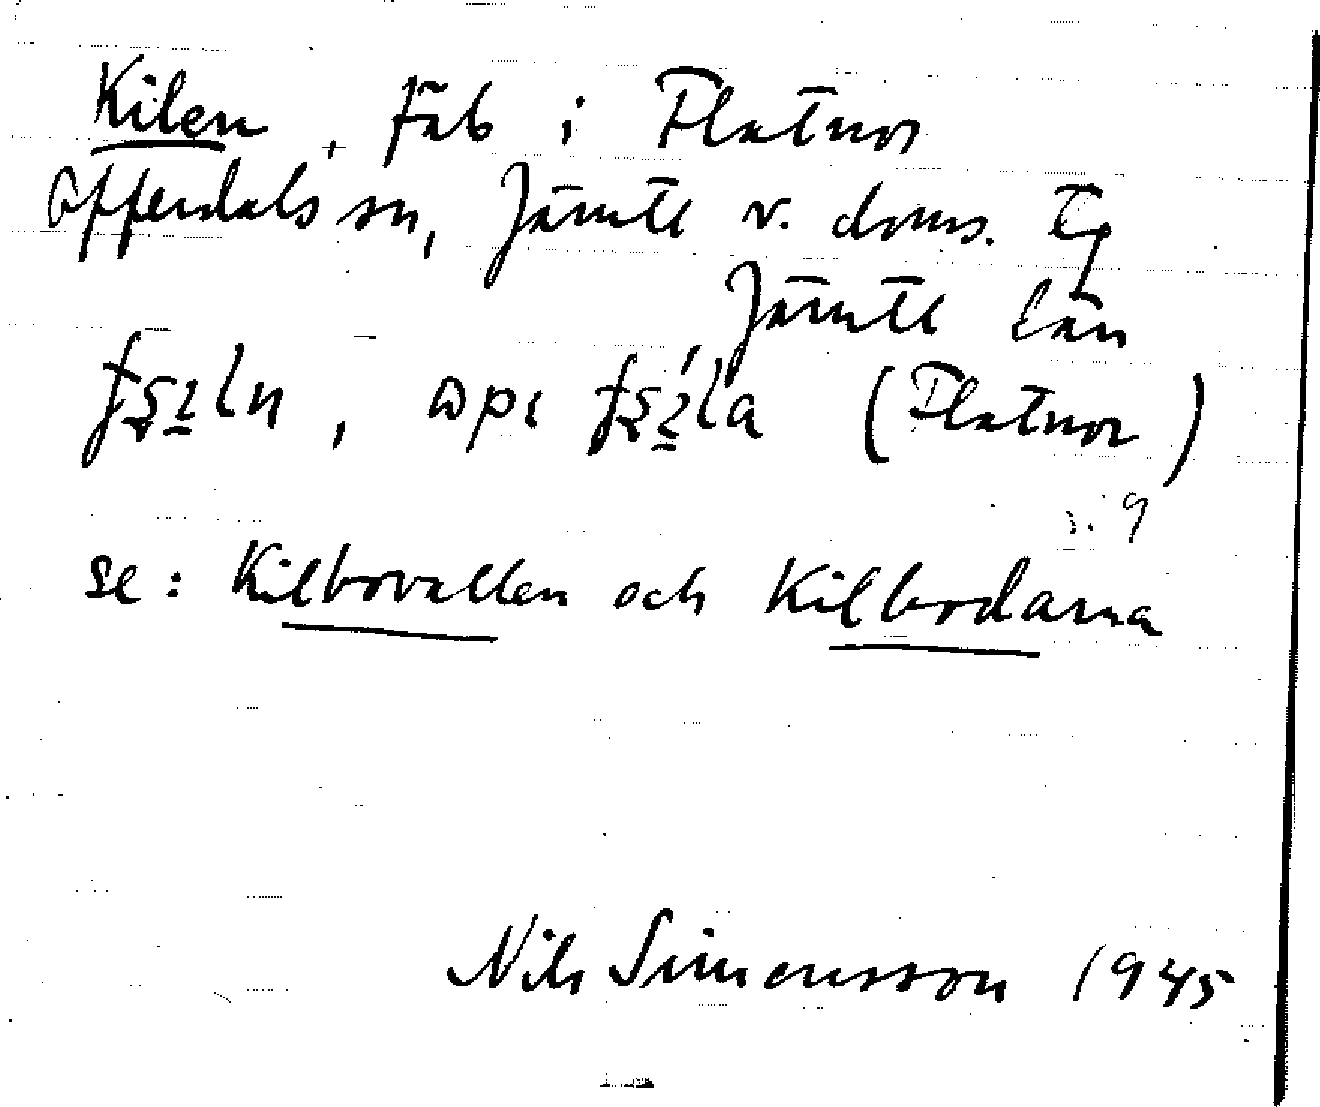 Kilen, Fäb i Flatnor
Offerdals sn, Jämtl v. doms. Tg
Jämtl län
(Flatnor)
s. 9
se: Kilbrovallen och Kilbrodarna
Nils Simonsson 1945